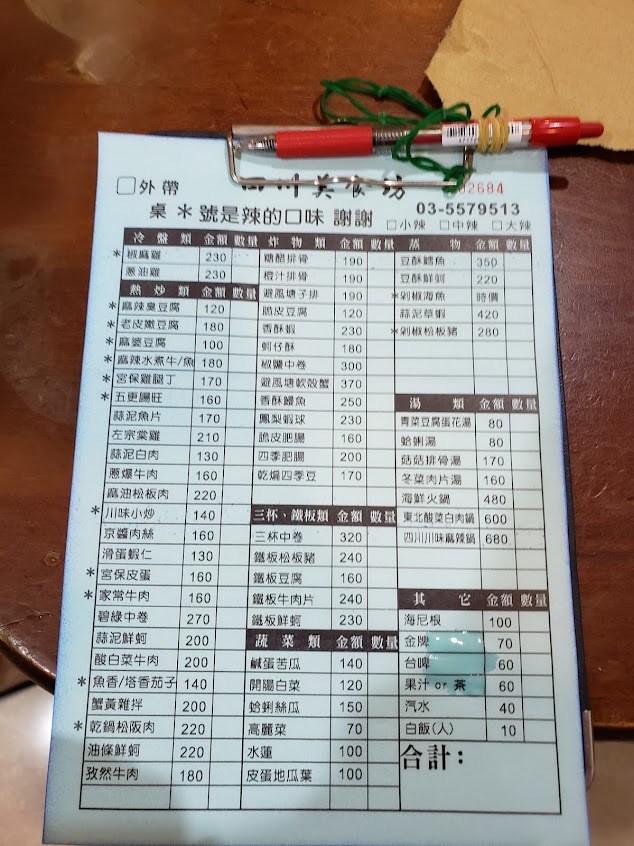 外帶
四川美食坊
2684
03-5579513
桌 *號是辣的口味 謝謝
小辣 中辣 大辣
冷盤類 金額 數量
*椒麻雞 230
蔥油雞 230
熱炒類 金額 數量
*麻辣臭豆腐 120
*老皮嫩豆腐 180
*麻婆豆腐 100
*麻辣水煮牛/魚 180
*宮保雞腿丁 170
*五更腸旺 160
蒜泥魚片 170
左宗棠雞 210
蒜泥白肉 130
蔥爆牛肉 160
麻油松板肉 220
*川味小炒 140
京醬肉絲 160
滑蛋蝦仁 130
*宮保皮蛋 160
*家常牛肉 160
碧綠中卷 270
蒜泥鮮蚵 200
酸白菜牛肉 200
*魚香/塔香茄子 140
蟹黃雜拌 200
*乾鍋松阪肉 220
油條鮮蚵 220
孜然牛肉 180
炸物類 金額 數量
糖醋排骨 190
橙汁排骨 190
避風塘子排 190
脆皮豆腐 120
香酥蝦 230
蚵仔酥 180
椒鹽中卷 300
避風塘軟殼蟹 370
香酥鰻魚 250
鳳梨蝦球 230
脆皮肥腸 160
四季肥腸 200
乾煸四季豆 170
三杯、鐵板類 金額 數量
三杯中卷 320
鐵板松板豬 240
鐵板豆腐 160
鐵板牛肉片 240
鐵板鮮蚵 230
蔬菜類 金額 數量
鹹蛋苦瓜 140
開陽白菜 120
蛤蜊絲瓜 150
高麗菜 70
水蓮 100
皮蛋地瓜葉 100
蒸物 金額 數量
豆酥鱈魚 350
豆酥鮮蚵 220
*剁椒海魚 時價
蒜泥草蝦 420
*剁椒松板豬 280
湯類 金額 數量
青菜豆腐蛋花湯 80
蛤蜊湯 80
菇菇排骨湯 170
冬菜肉片湯 160
海鮮火鍋 480
東北酸菜白肉鍋 600
四川川味麻辣鍋 680
其它 金額 數量
海尼根 100
金牌 70
台啤 60
果汁 or 茶 60
汽水 40
白飯(人) 10
合計: